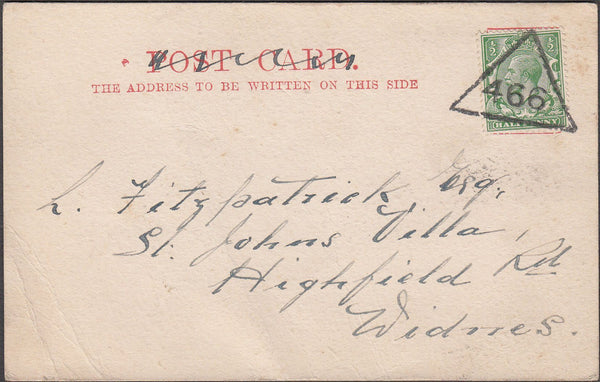 POST CARD.
THE ADDRESS TO BE WRITTEN ON THIS SIDE
466
HALFPENNY
L. Fitzpatrick Esq,
St. Johns Villa,
Highfield Rd
Widnes.